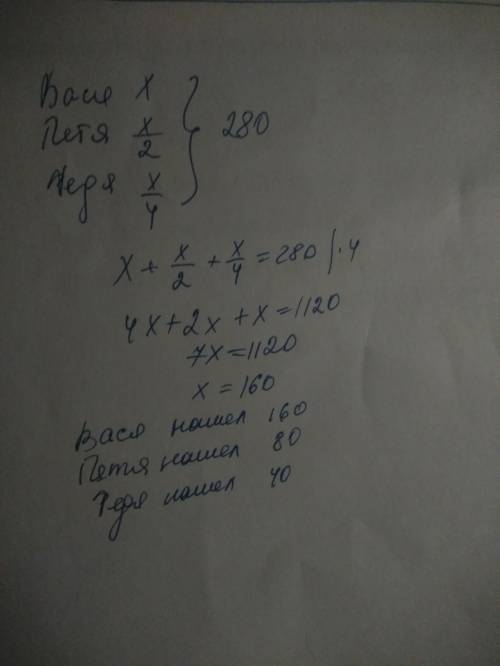 Вася x
Петя x/2 } 280
Федя x/4
x + x/2 + x/4 = 280 | · 4
4x + 2x + x = 1120
7x = 1120
x = 160
Вася нашел 160
Петя нашел 80
Федя нашел 40